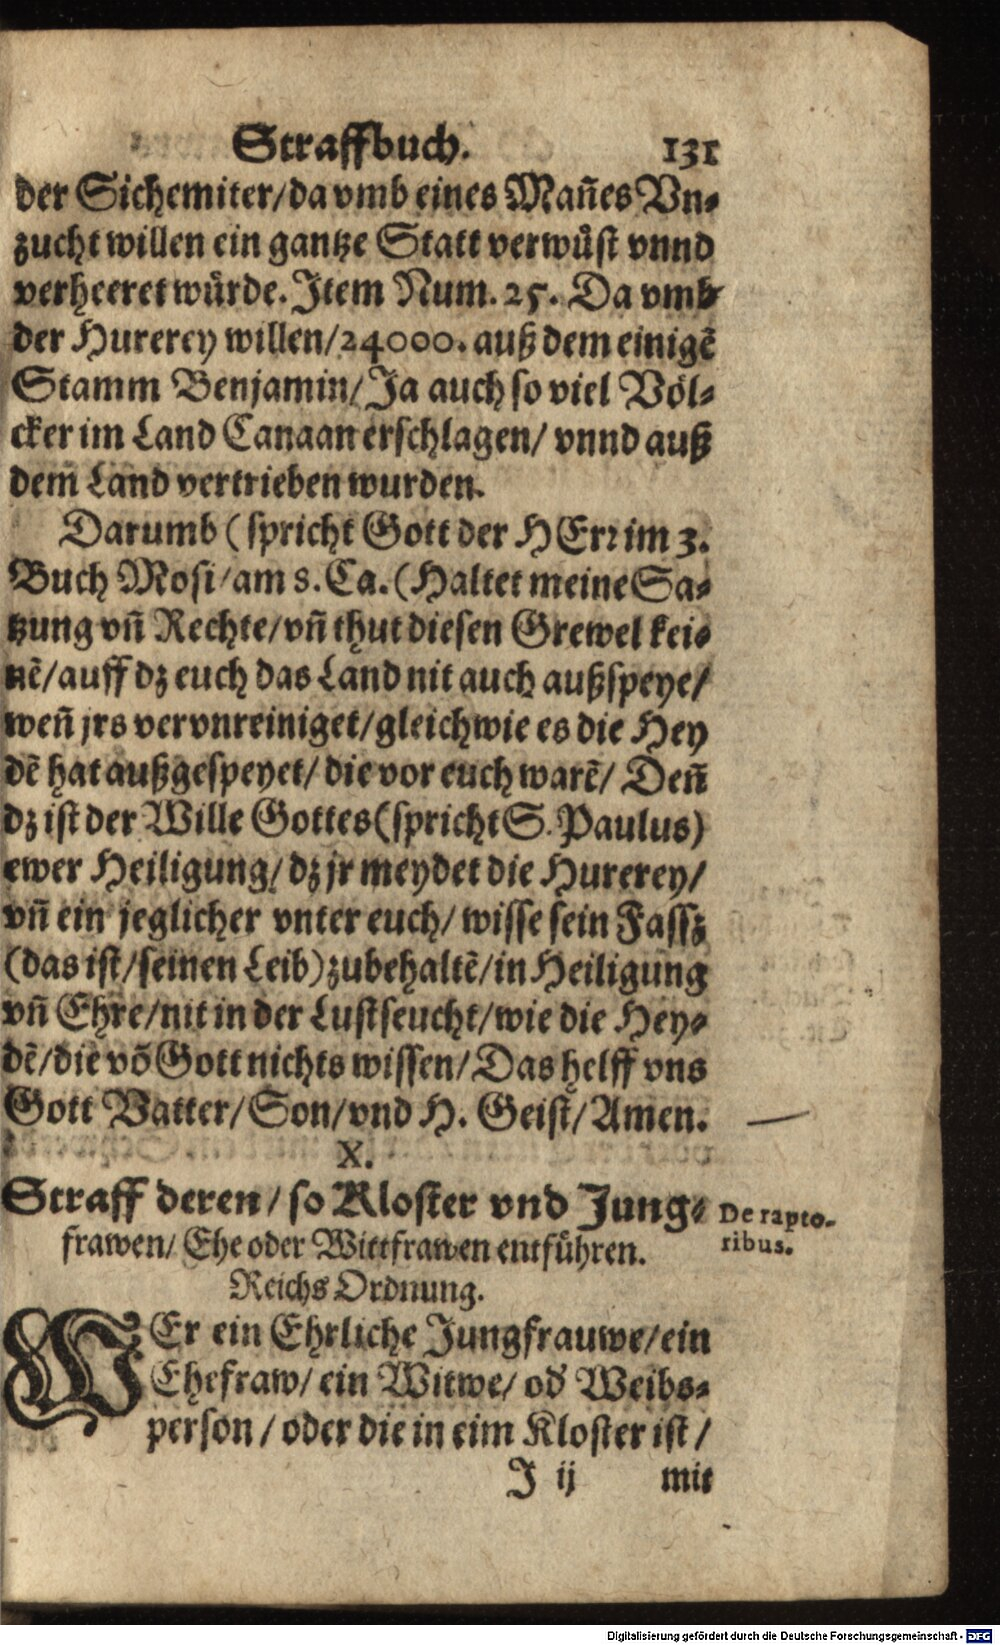 Straffbuch. 131
der Sichemiter/da vmb eines Mañes Vn-
zucht willen ein gantze Statt verwuͤst vnnd
verheeret wuͤrde. Item Num. 25. Da vmb
der Hurerey willen/24000. auß dem einigẽ
Stamm Benjamin/Ja auch so viel Voͤl-
cker im Land Canaan erschlagen/ vnnd auß
dem Land vertrieben wurden.
Darumb (spricht Gott der HErꝛ im 3.
Buch Mosi/am 8. Ca. (Haltet meine Sa-
tzung vñ Rechte/vñ thut diesen Grewel kei-
nẽ/auff dz euch das Land nit auch außspeye/
weñ jrs vervnreiniget/gleichwie es die Hey
dẽ hat außgespeyet/ die vor euch warẽ/ Deñ
dz ist der Wille Gottes (spricht S. Paulus)
ewer Heiligung/ dz jr meydet die Hurerey/
vñ ein jeglicher vnter euch/ wisse sein Fassz
(das ist/seinen Leib) zubehaltẽ/in Heiligung
vñ Ehre/nit in der Lustseucht/wie die Hey-
dẽ/die võ Gott nichts wissen/ Das helff vns
Gott Vatter/Son/vnd H. Geist/Amen.
X.
Straff deren/so Kloster vnd Jung-
frawen/ Ehe oder Wittfrawen entfuͤhren.
De rapto-
ribus.
Reichs Ordnung.
WEr ein Ehrliche Jungfrauwe/ein
Ehefraw/ ein Witwe/ od̓ Weibs-
person/ oder die in eim Kloster ist/
J ij mit
Digitalisierung gefördert durch die Deutsche Forschungsgemeinschaft - DFG